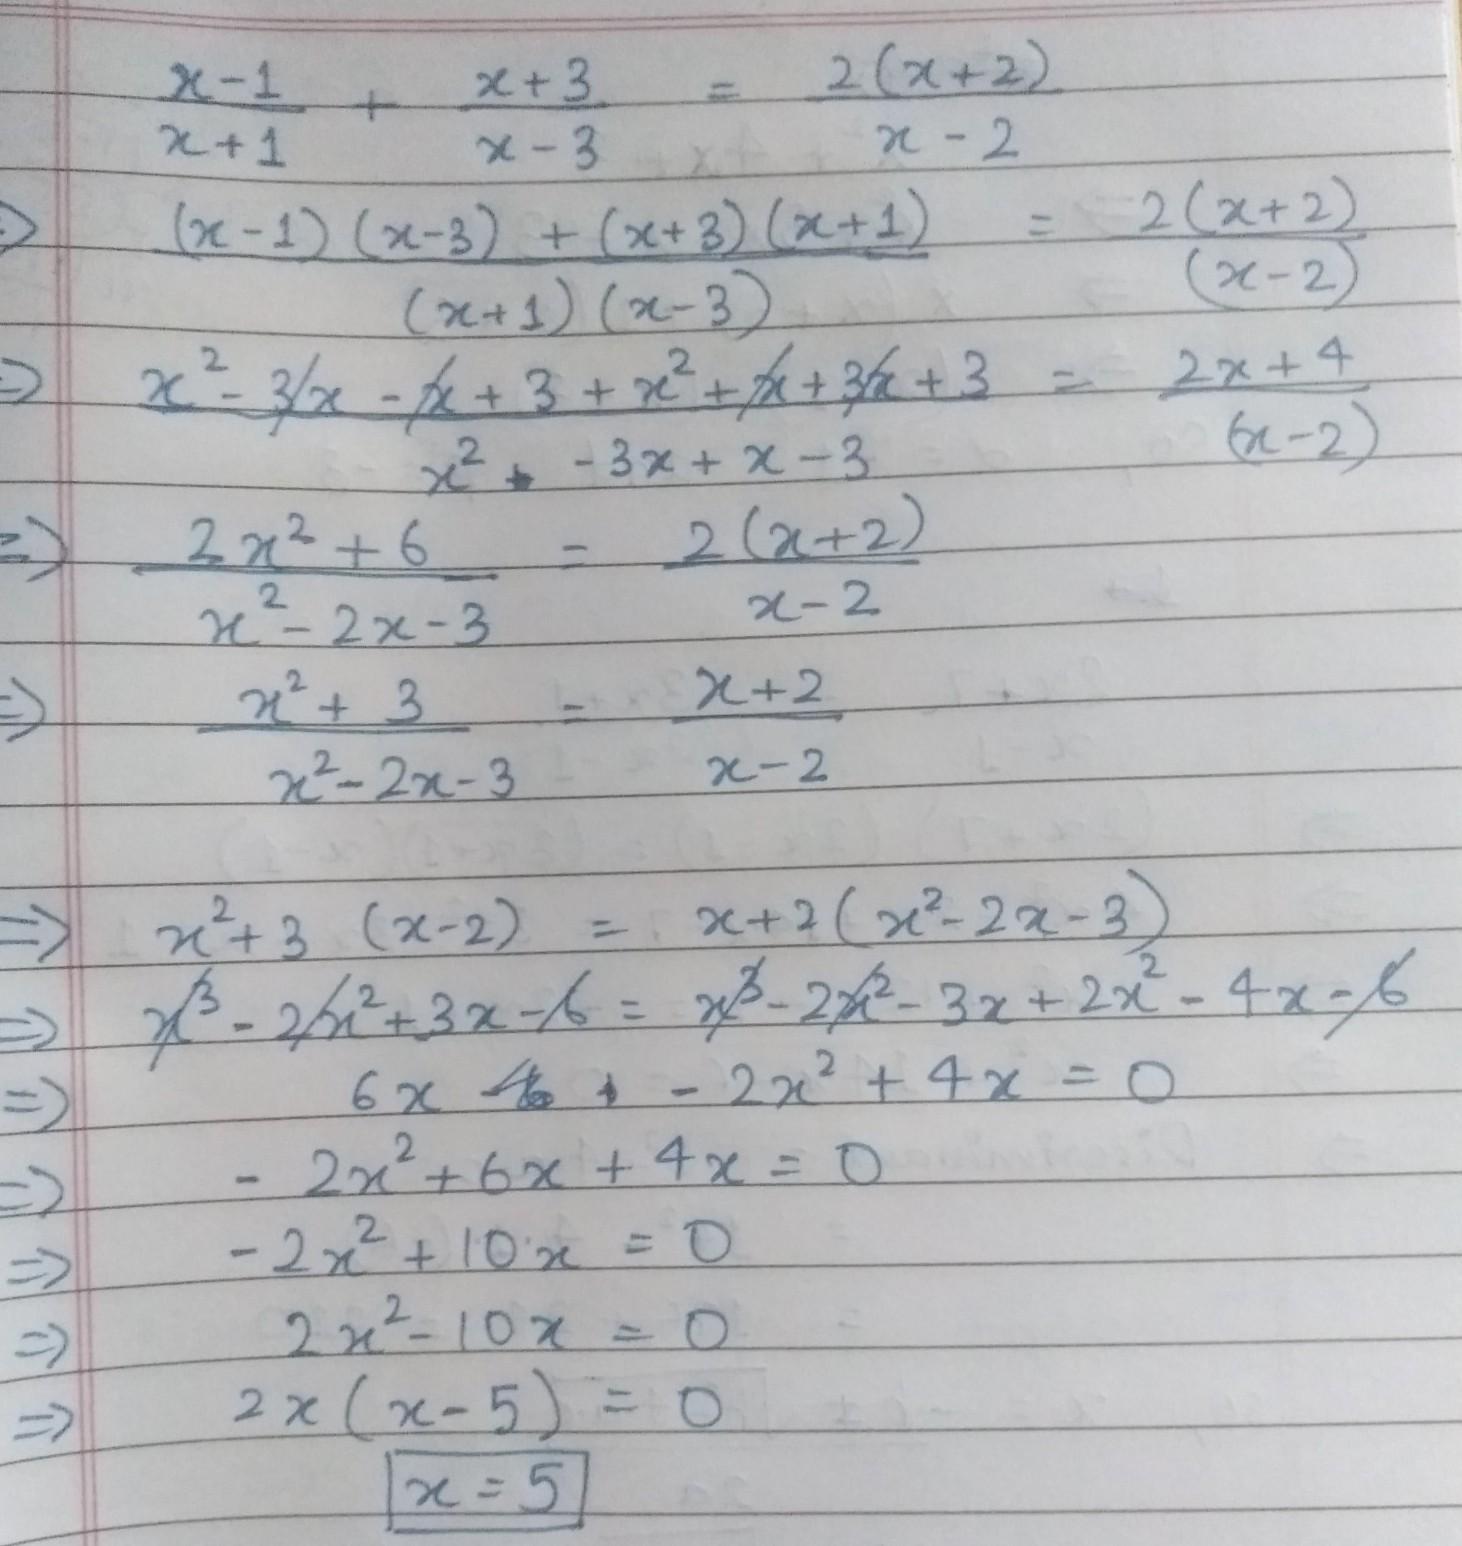 x-1/x+1 + x+3/x-3 = 2(x+2)/x-2
⇒ (x-1)(x-3) + (x+3)(x+1)/(x+1)(x-3) = 2(x+2)/(x-2)
⇒ x² - 3x - x + 3 + x² + x + 3x + 3/x² - 3x + x - 3 = 2x + 4/(x-2)
⇒ 2x² + 6/x² - 2x - 3 = 2(x+2)/x-2
⇒ x² + 3/x² - 2x - 3 = x+2/x-2
⇒ x² + 3 (x-2) = x+2(x² - 2x - 3)
⇒ x³ - 2x² + 3x - 6 = x³ - 2x² - 3x + 2x² - 4x - 6
⇒ 6x - 2x² + 4x = 0
⇒ - 2x² + 6x + 4x = 0
⇒ - 2x² + 10x = 0
⇒ 2x² - 10x = 0
⇒ 2x(x-5) = 0
x = 5